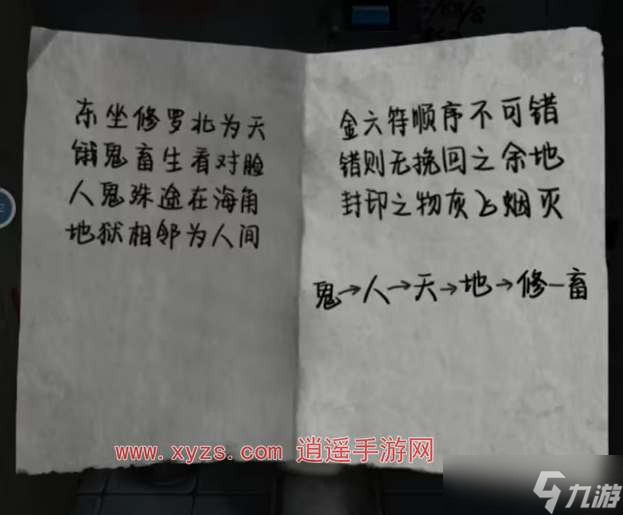 东坐修罗北为天
饿鬼畜生看对脸
人鬼殊途在海角
地狱相邻为人间
金六符顺序不可错
错则无挽回之余地
封印之物灰飞烟灭
鬼→人→天→地→修-畜
www.xyzs.com 逍遥手游网
九游